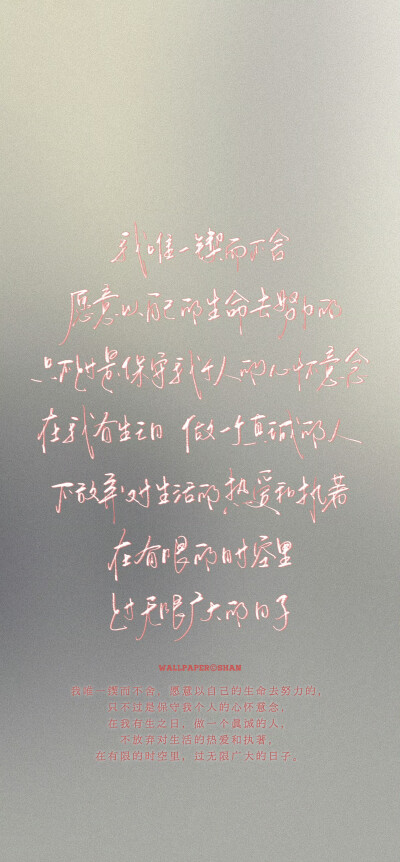 我唯一锲而不舍
愿意以自己的生命去努力的
只不过是保守我个人的心怀意念
在我有生之日 做一个真诚的人
不放弃对生活的热爱和执着
在有限的时空里
过无限广大的日子
WALLPAPER©SHAN
我唯一锲而不舍,愿意以自己的生命去努力的,
只不过是保守我个人的心怀意念,
在我有生之日,做一个真诚的人,
不放弃对生活的热爱和执著,
在有限的时空里,过无限广大的日子。